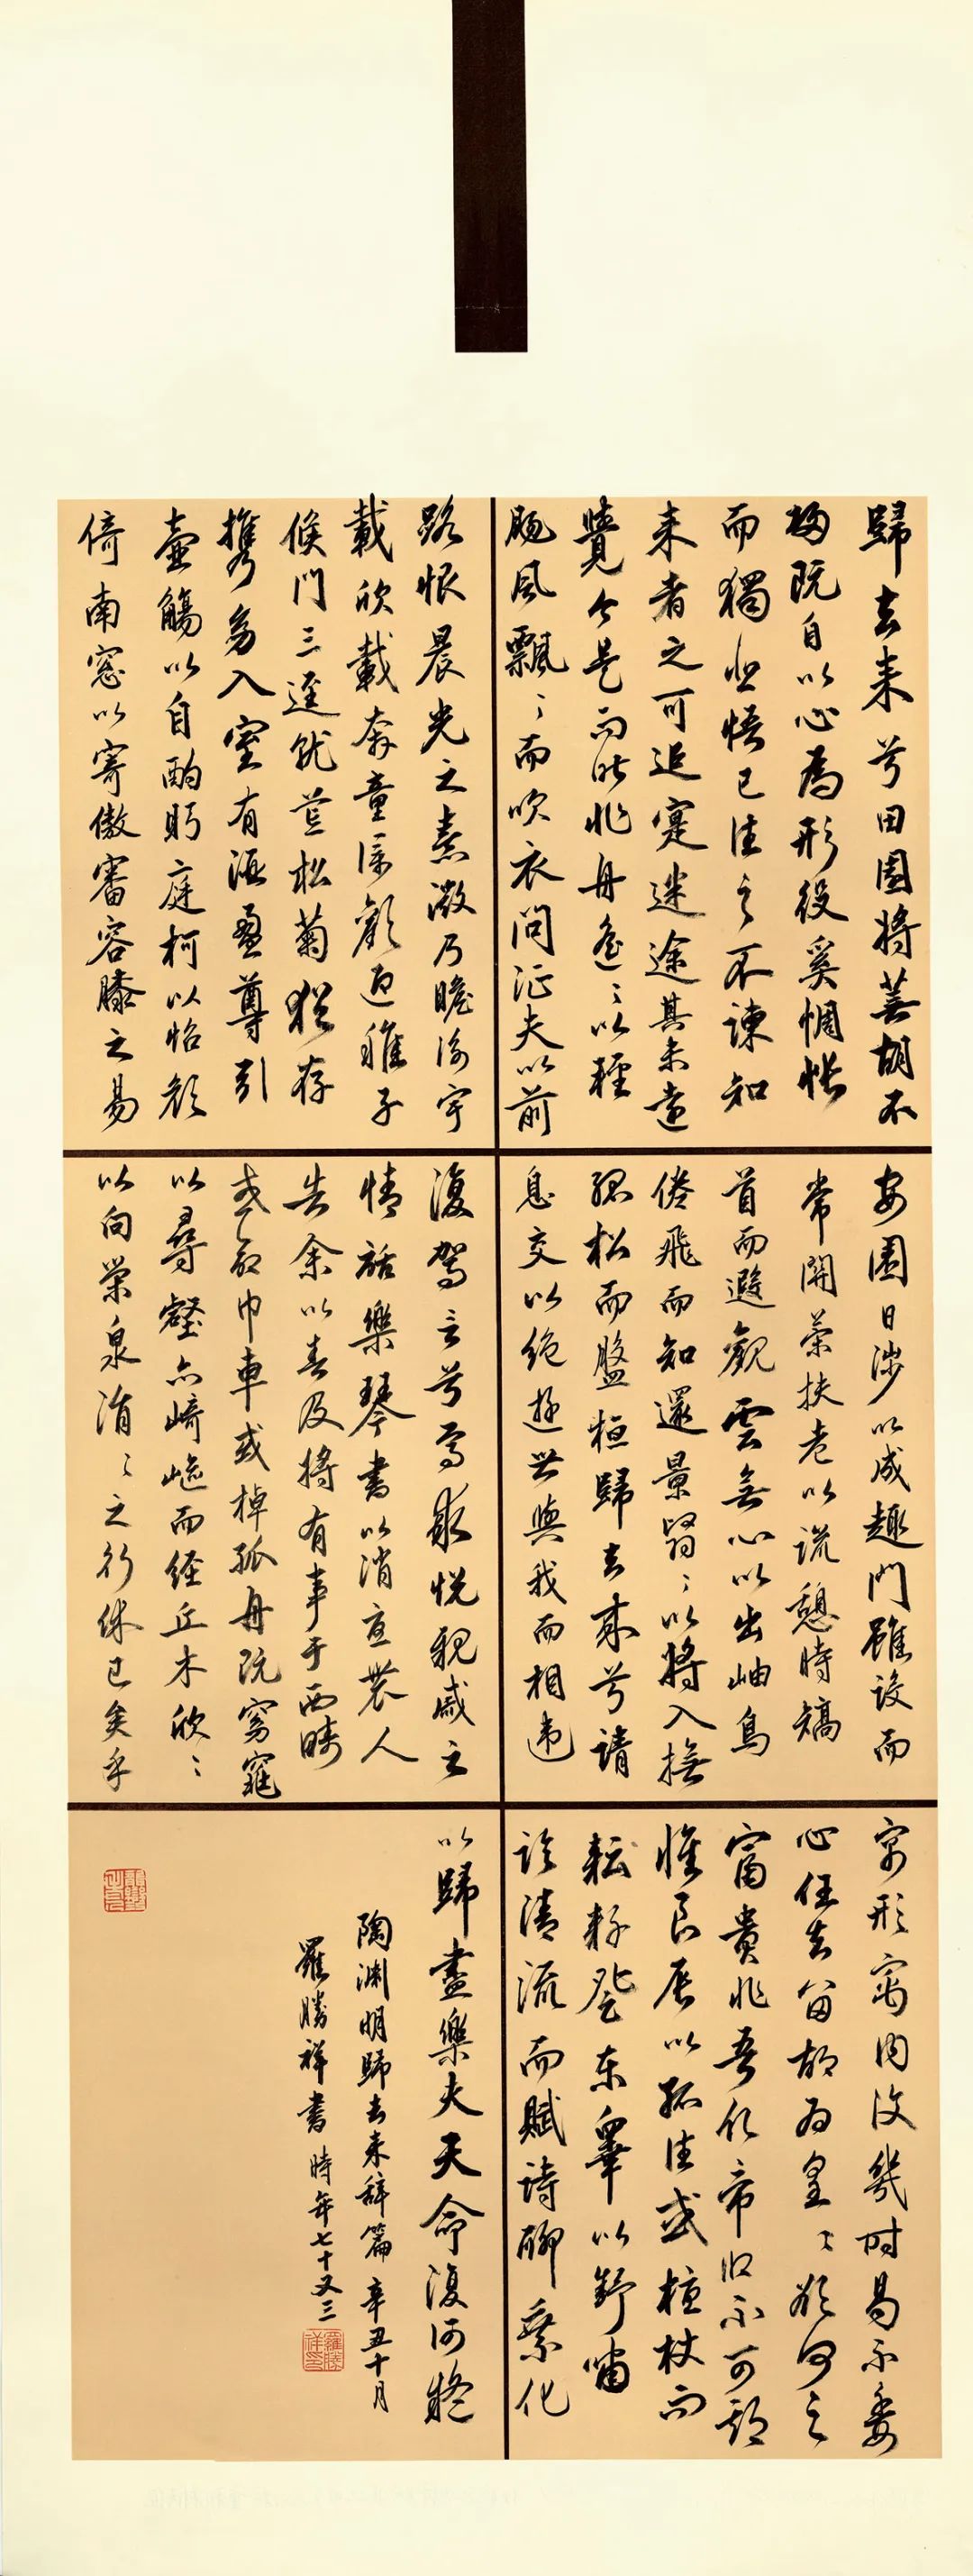 歸去来兮田園將蕪胡不
歸既自以心為形役奚惆悵
而獨悲悟已往之不諫知
来者之可追寔迷途其未遠
覺今是而昨非舟遙〻以輕
颺風飄〻而吹衣問征夫以前
路恨晨光之熹微乃瞻衡宇
載欣載奔童僕歡迎稚子
候門三逕就荒松菊猶存
攜幼入室有酒盈尊引
壺觴以自酌眄庭柯以怡顏
倚南窓以寄傲審容膝之易
安園日涉以成趣門雖設而
常關策扶老以流憩時矯
首而遐觀雲無心以出岫鳥
倦飛而知還景翳〻以將入撫
孤松而盤桓歸去来兮請
息交以絕遊世與我而相違
復駕言兮焉求悅親戚之
情話樂琴書以消憂農人
告余以春及將有事于西疇
或命巾車或棹孤舟既窈窕
以尋壑亦崎嶇而經丘木欣〻
以向榮泉涓〻之行休已矣乎
寓形寓内復幾時曷不委
心任去留胡為皇〻欲何之
富貴非吾願帝鄉不可期
懷良辰以孤往或植杖而
耘耔登東皋以舒嘯
臨清流而賦詩聊乘化
以歸盡樂夫天命復何疑
陶渊明歸去来辭篇辛丑十月
羅勝祥書時年七十又三
羅勝祥印